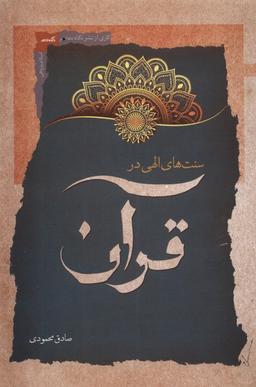 کاری از نشر نگاه معاصر
سنت‌های الهی در
قرآن
صادق محمودی